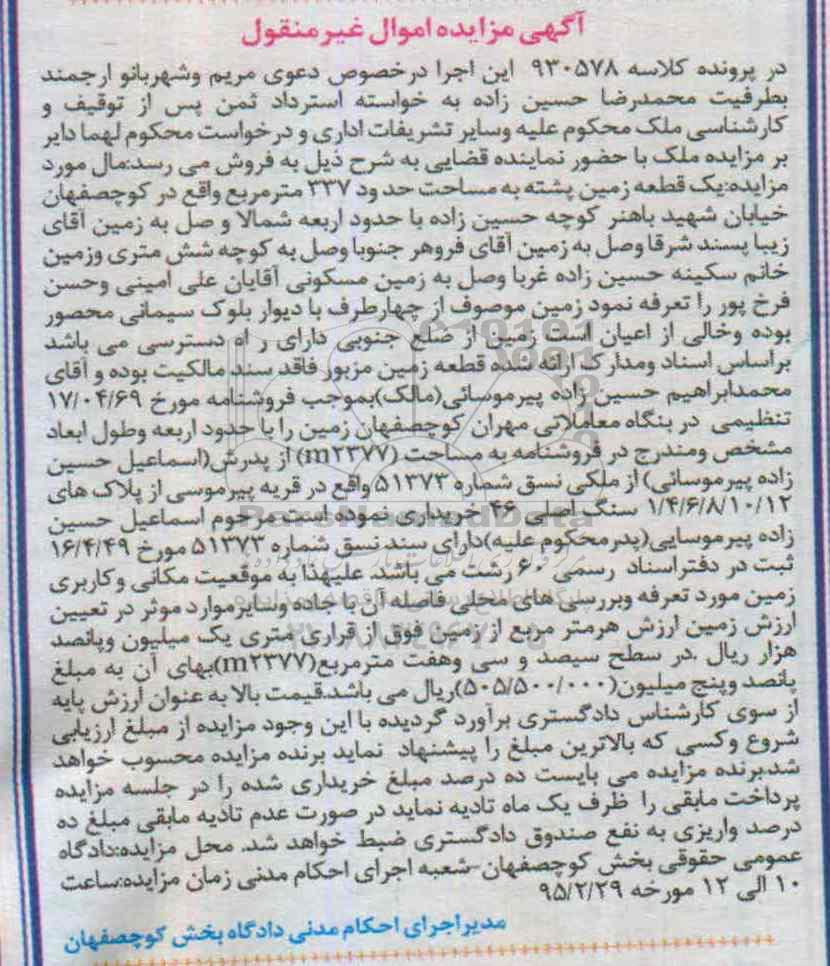 آگهی مزایده اموال غیرمنقول
در پرونده کلاسه ۹۳۰۵۷۸ این اجرا درخصوص دعوی مریم وشهربانو ارجمند
بطرفیت محمدرضا حسین زاده به خواسته استرداد ثمن پس از توقیف و
کارشناسی ملک محکوم علیه وسایر تشریفات اداری و درخواست محکوم لهما دایر
بر مزایده ملک با حضور نماینده قضایی به شرح ذیل به فروش می رسد:مال مورد
مزایده:یک قطعه زمین پشته به مساحت حدود ۳۳۷ مترمربع واقع در کوچصفهان
خیابان شهید باهنر کوچه حسین زاده با حدود اربعه شمالا و صل به زمین آقای
زیبا پسند شرقا وصل به زمین آقای فروهر جنوبا وصل به کوچه شش متری وزمین
خانم سکینه حسین زاده غربا وصل به زمین مسکونی آقایان علی امینی وحسن
فرخ پور را تعرفه نمود زمین موصوف از چهارطرف با دیوار بلوک سیمانی محصور
بوده وخالی از اعیان است زمین از ضلع جنوبی دارای ر اه دسترسی می باشد
براساس اسناد ومدارک ارائه شده قطعه زمین مزبور فاقد سند مالکیت بوده و آقای
محمدابراهیم حسین زاده پیرموسائی(مالک)بموجب فروشنامه مورخ ۱۷/۰۴/۶۹
تنظیمی در بنگاه معاملاتی مهران کوچصفهان زمین را با حدود اربعه وطول ابعاد
مشخص ومندرج در فروشنامه به مساحت (m۲۳۷۷) از پدرش(اسماعیل حسین
زاده پیرموسائی) از ملکی نسق شماره ۵۱۳۷۳واقع در قریه پیرموسی از پلاک های
۱/۴/۶/۸/۱۰/۱۲ سنگ اصلی ۴۶ خریداری نموده است مرحوم اسماعیل حسین
زاده پیرموسایی(پدرمحکوم علیه)دارای سند نسق شماره ۵۱۳۷۳ مورخ ۱۶/۴/۴۹
ثبت در دفتراسناد رسمی ۶۰ رشت می باشد. علیهذا به موقعیت مکانی وکاربری
زمین مورد تعرفه وبررسی های محلی فاصله آن با جاده وسایرموارد موثر در تعیین
ارزش زمین ارزش هرمتر مربع از زمین فوق از قراری متری یک میلیون وپانصد
هزار ریال .در سطح سیصد و سی وهفت مترمربع(m۲۳۷۷)بهای آن به مبلغ
پانصد وپنج میلیون(۵۰۵/۵۰۰/۰۰۰)ریال می باشد.قیمت بالا به عنوان ارزش پایه
از سوی کارشناس دادگستری برآورد گردیده با این وجود مزایده از مبلغ ارزیابی
شروع وکسی که بالاترین مبلغ را پیشنهاد نماید برنده مزایده محسوب خواهد
شد.برنده مزایده می بایست ده درصد مبلغ خریداری شده را در جلسه مزایده
پرداخت مابقی را ظرف یک ماه تادیه نماید در صورت عدم تادیه مابقی مبلغ ده
درصد واریزی به نفع صندوق دادگستری ضبط خواهد شد. محل مزایده:دادگاه
عمومی حقوقی بخش کوچصفهان-شعبه اجرای احکام مدنی زمان مزایده:ساعت
۱۰ الی ۱۲ مورخه ۹۵/۲/۲۹
مدیراجرای احکام مدنی دادگاه بخش کوچصفهان
ParsNamadData